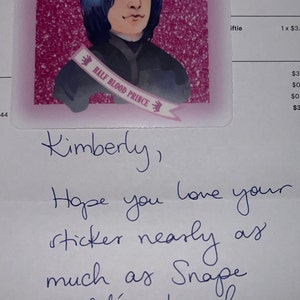 ftie
1 x $3.
HALF BLOOD PRINCE
$3
$0
$0
$3
44
Kimberly,
Hope you love your
sticker nearly as
much as Snape